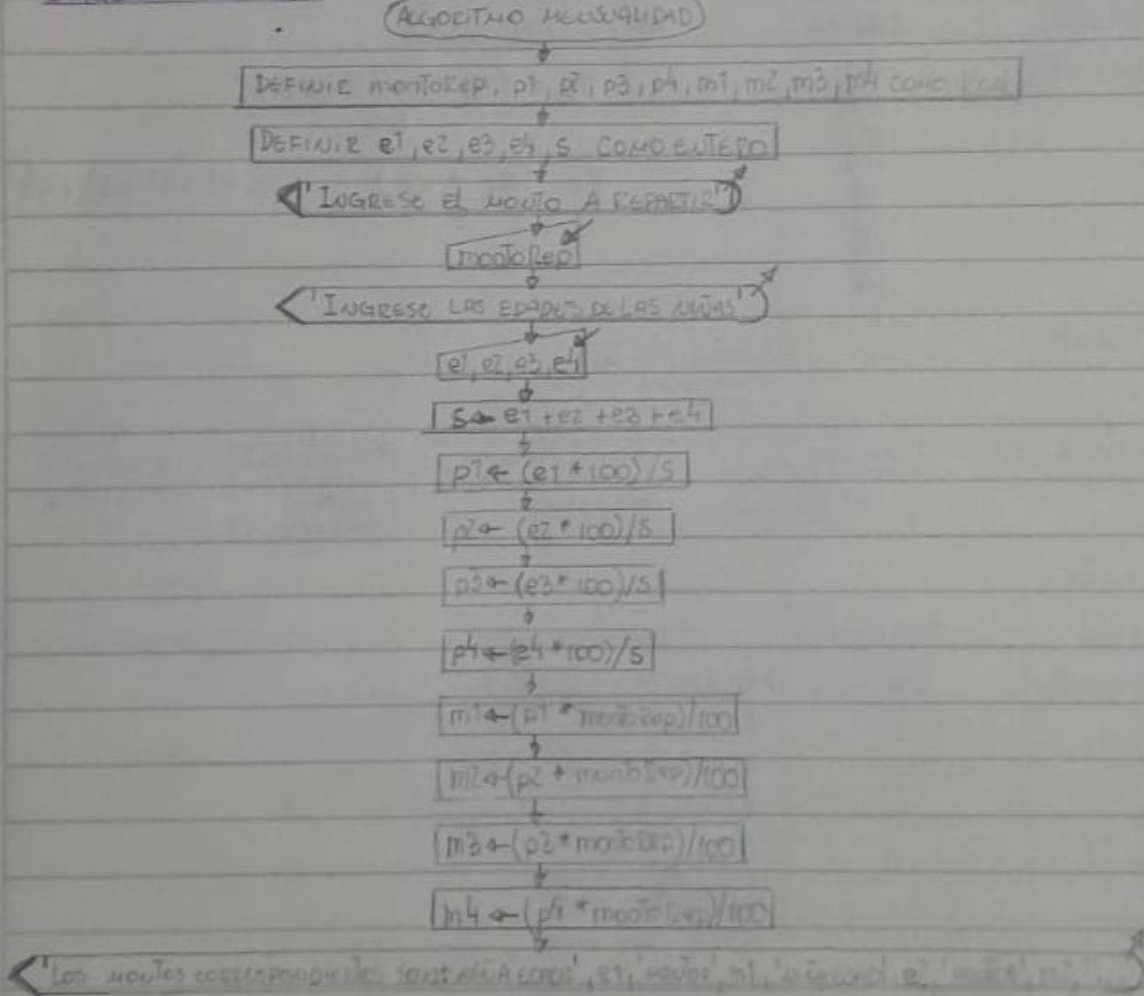 ALGORITMO MENSUALIDAD
DEFINIR montoRep, p1, p2, p3, p4, m1, m2, m3, m4 COMO REAL
DEFINIR e1, e2, e3, e4, s COMO ENTERO
'INGRESE EL MONTO A REPARTIR'
montoRep
'INGRESE LAS EDADES DE LAS NIÑAS'
e1, e2, e3, e4
S← e1 + e2 + e3 + e4
p1← (e1 * 100)/S
p2← (e2 * 100)/S
p3← (e3 * 100)/S
p4← (e4 * 100)/S
m1←(p1 * montoRep)/100
m2←(p2 * montoRep)/100
m3←(p3 * montoRep)/100
m4←(p4 * montoRep)/100
'LOS MONTOS CORRESPONDIENTES SON: NIÑA EDAD:', e1, 'MONTO:', m1, e2, m2,